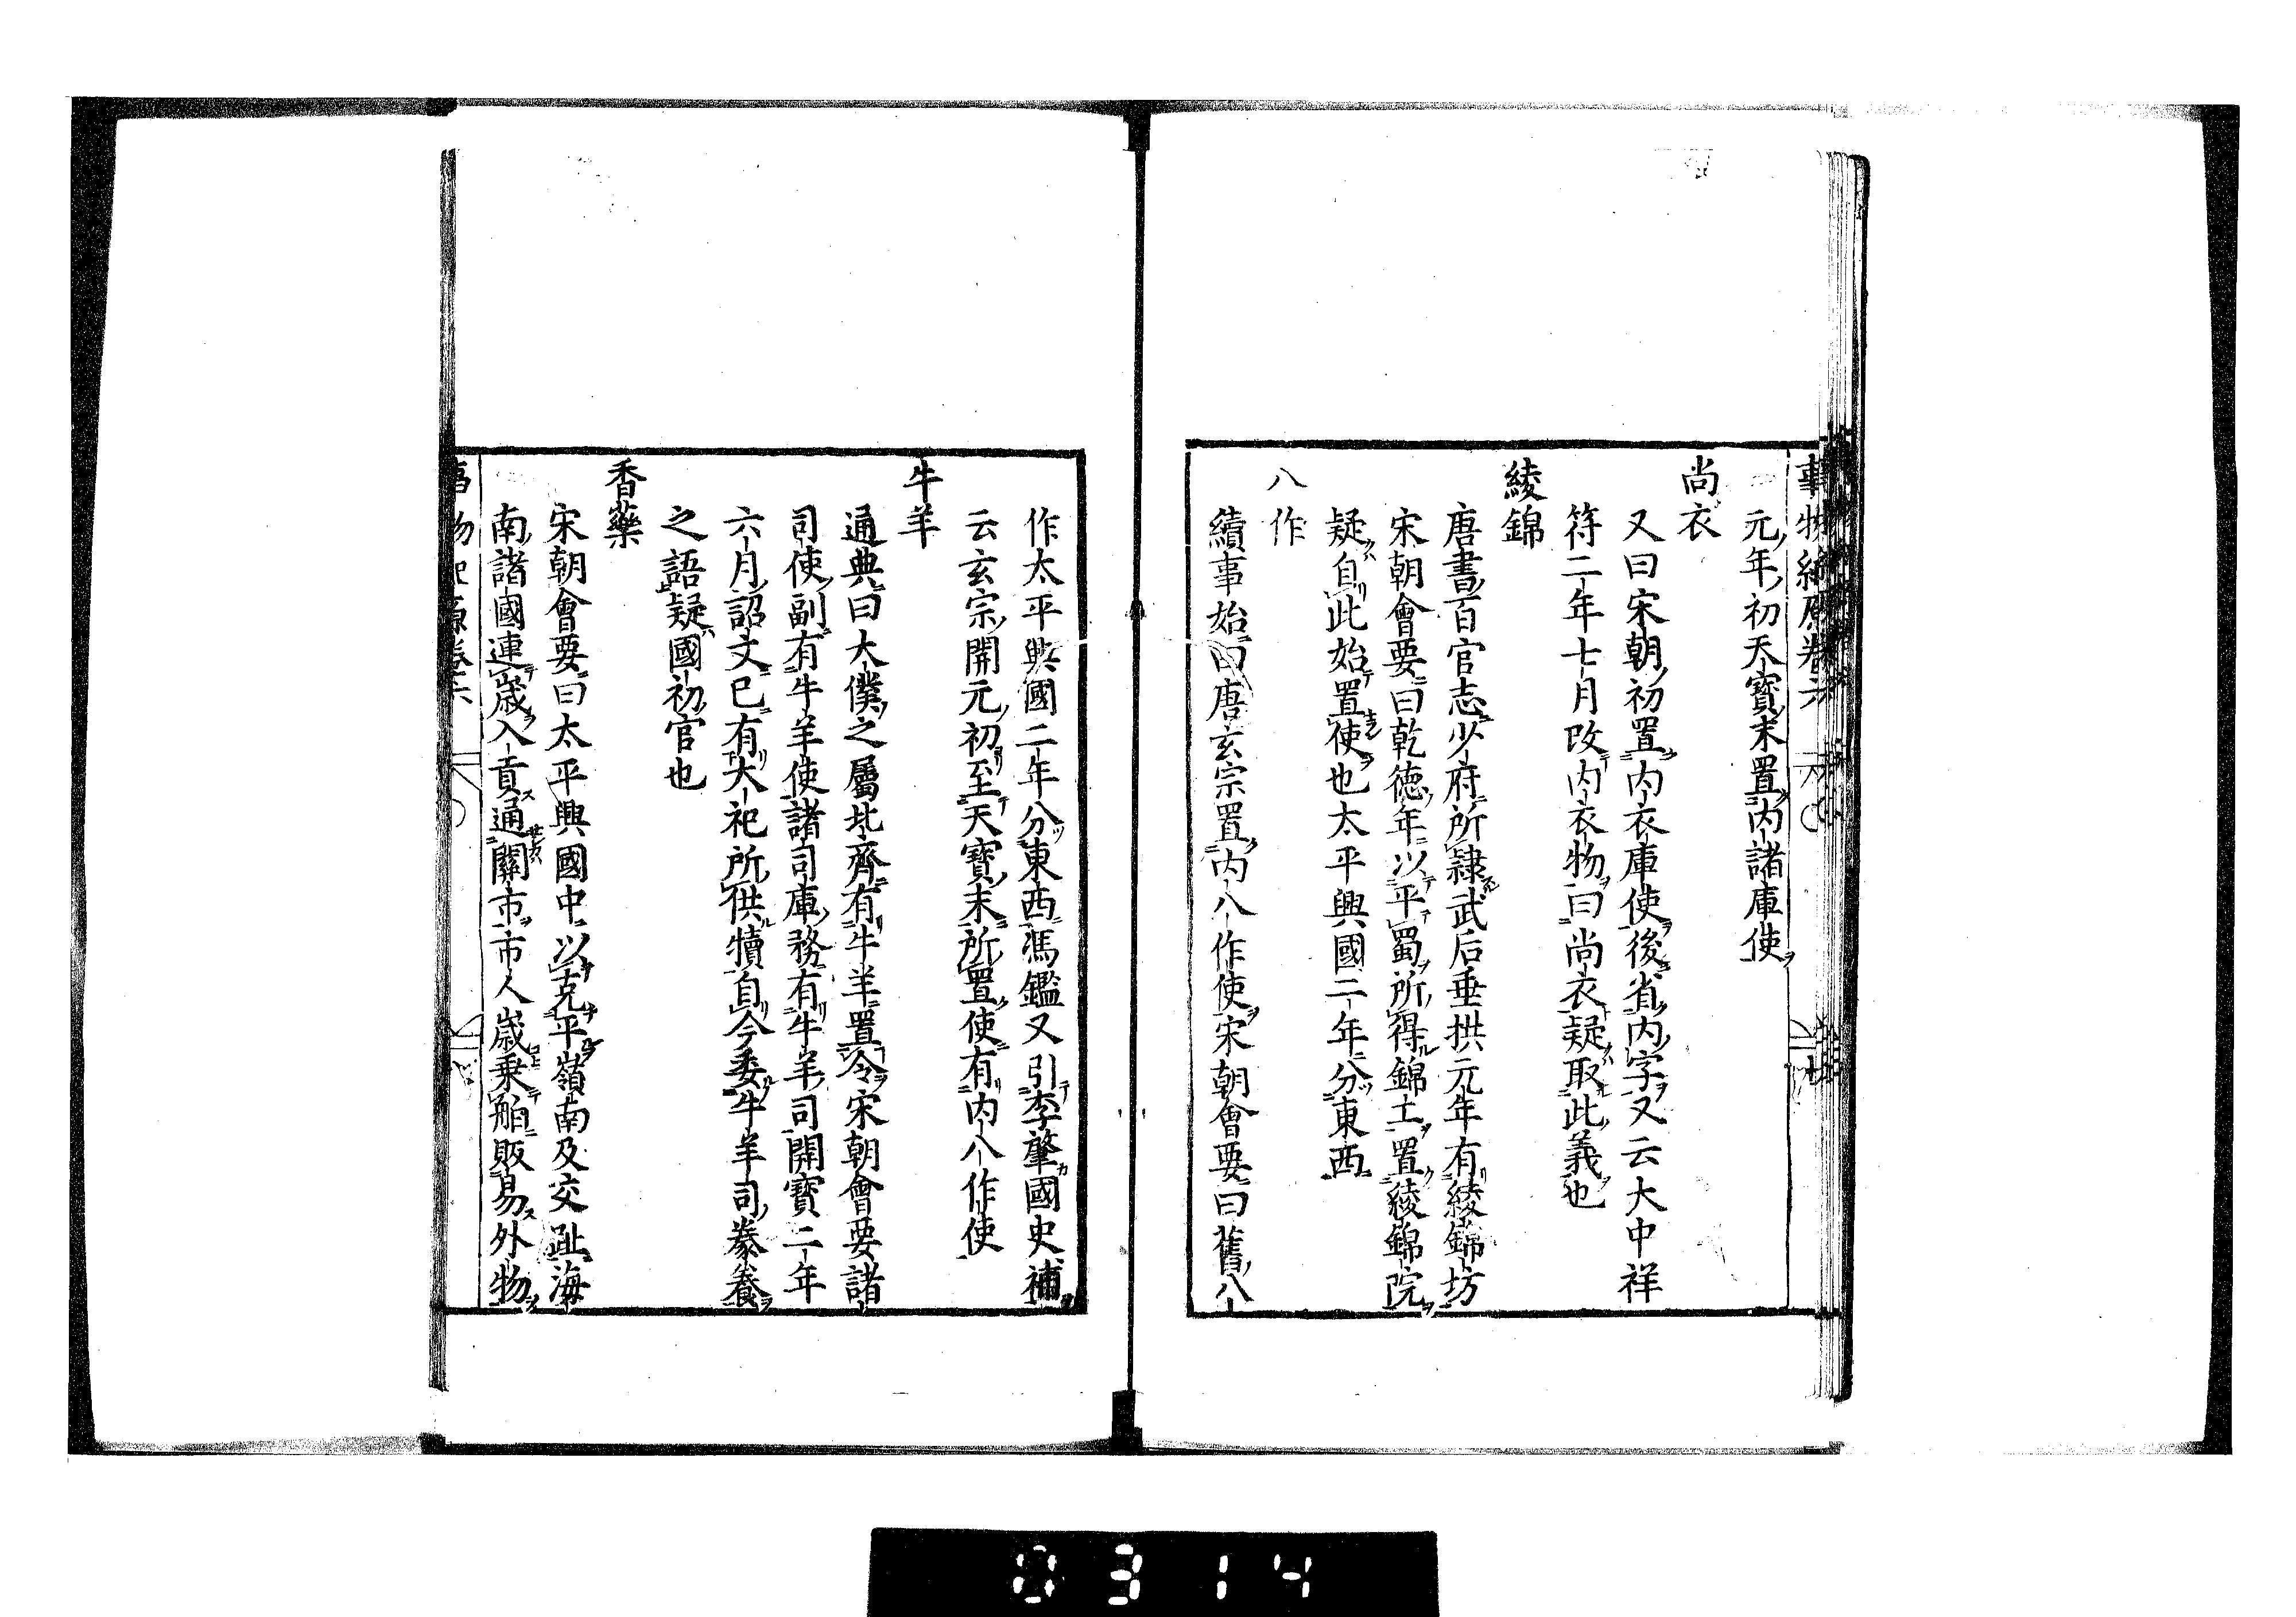 事物紀原卷六
元年初天寶末置內諸庫使
尚衣
又曰宋朝初置內衣庫使後省內字又云大中祥
符二年七月改內衣物曰尚衣疑取此義也
綾錦
唐書百官志少府所隷武后垂拱元年有綾錦坊
宋朝會要曰乾德年以平蜀所得錦土置綾錦院
疑自此始置使也太平興國二年分東西
八作
續事始曰唐玄宗置內八作使宋朝會要曰舊八
作太平興國二年分東西馮鑑又引李肇國史補
云玄宗開元初至天寶末所置使有內八作使
牛羊
通典曰大僕之屬北齊有牛羊置令宋朝會要諸
司使副有牛羊使諸司庫務有牛羊司開寶二年
六月詔文已有大祀所供犢自今委牛羊司豢養
之語疑國初官也
香藥
宋朝會要曰太平興國中以克平嶺南及交趾海
南諸國連歲入貢通關市市人歲乗舶販易外物
事物紀原卷六
0314